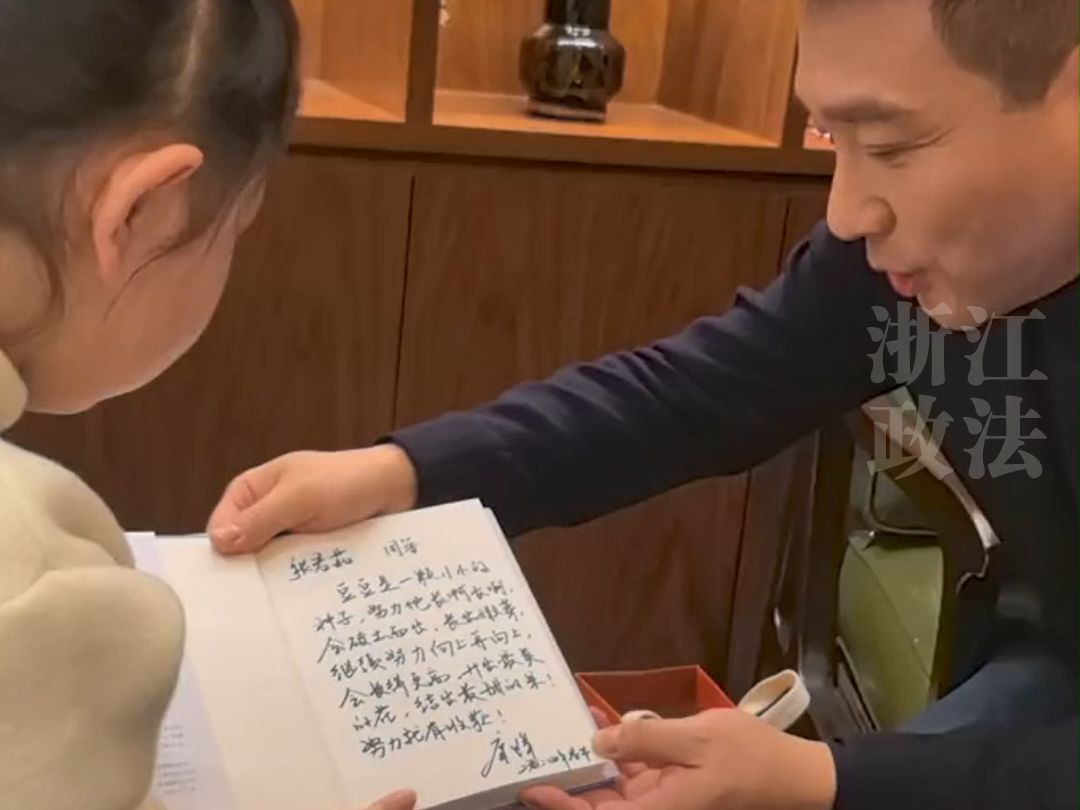 张君茹 同学
豆豆是一颗小小的
种子，努力地长啊长啊，
会破土而出，长出嫩芽，
继续努力向上再向上，
会长得更高，开出最美
的花，结出最甜的果！
努力就有收获！
康辉
浙江
政法